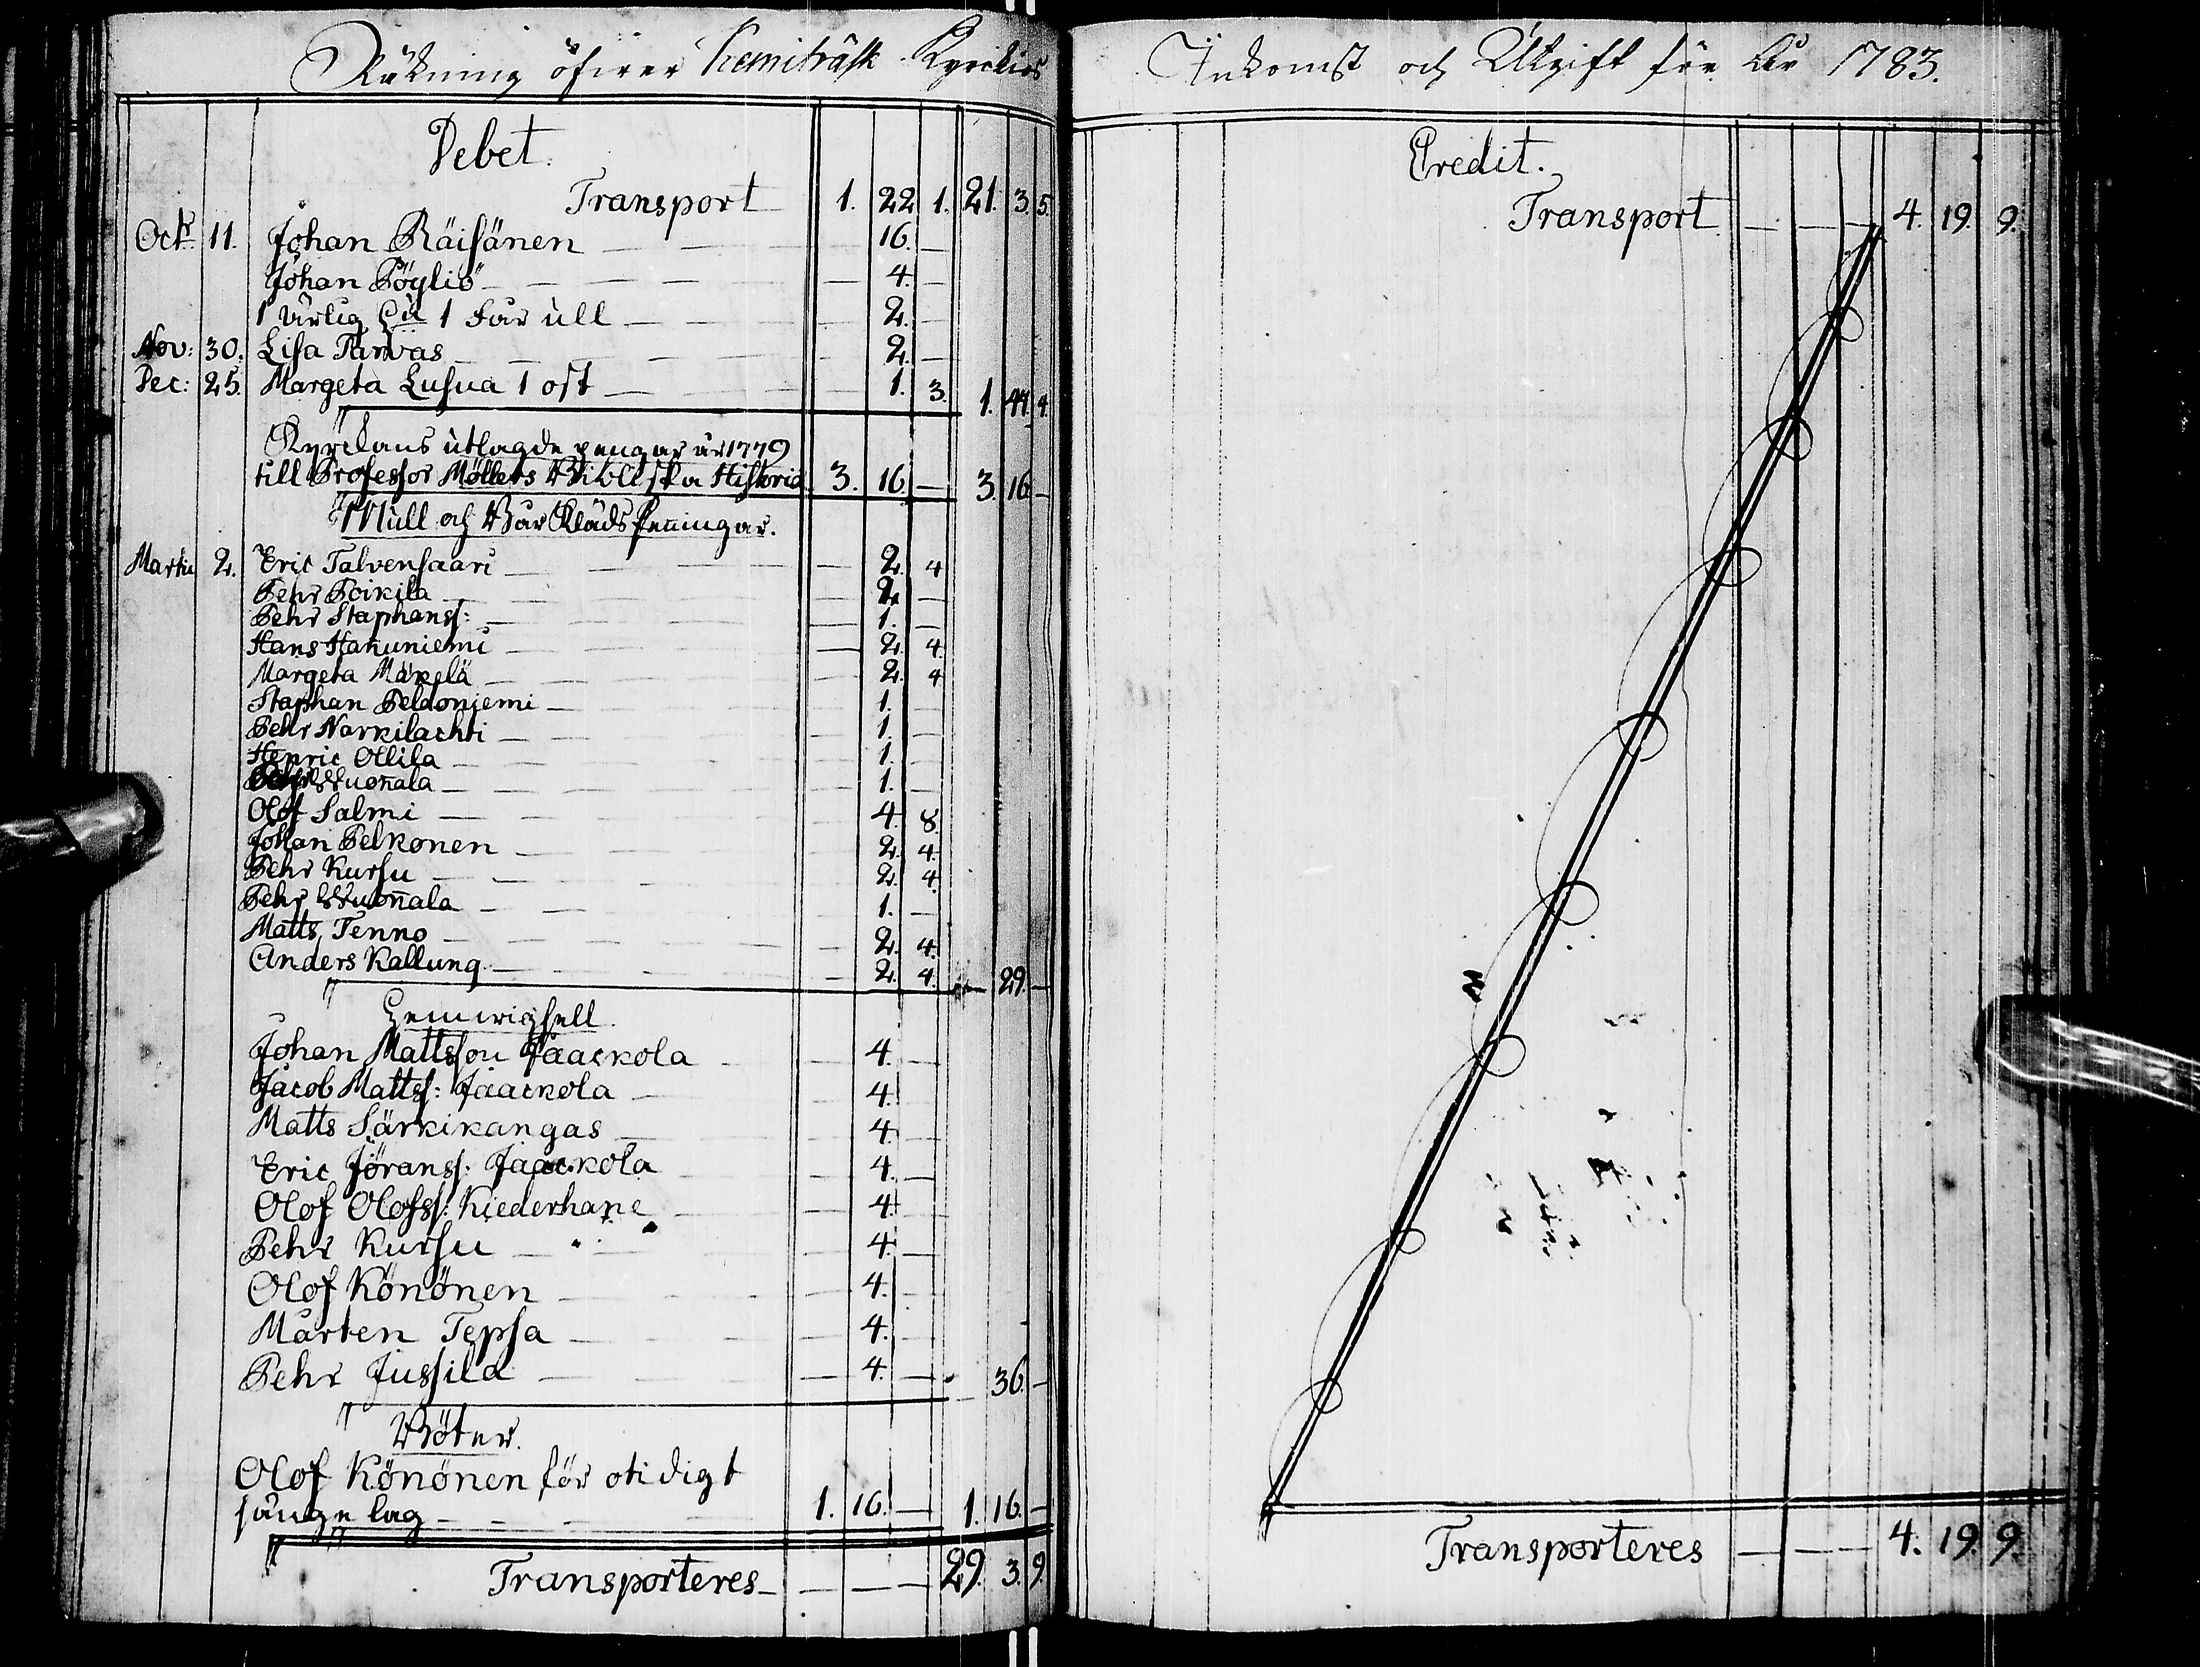 Räkning öfwer Kemiträsk Kyrckios
Debet.
Transport 1. 22 1. 21. 3. 5.
Octr 11. Johan Räisänen 16.
Johan Pöyliö 4.
1 Fär ull 2.
Nov: 30. Lisa Tarvas 2.
Dec: 25. Margeta Lusua 1 ost 1. 3. 1. 44. 4.
Kyrckans utlagde pengar år 1779
till Professor Möllers Bibliska Historia 3. 16. 3. 16
Mull och Bår Kläds Penningar.
Martii 2. Eric Talvensaari 2. 4
Pehr Poikila 2.
Pehr Staphanss: 1.
Hans Hanuniemi 2. 4.
Margeta Märkelä 2. 4
Staphan Peldoniemi 1.
Pehr Narkilachti 1.
Henric Ollila 1.
Wuonala 1.
Olof Salmi 4. 8.
Johan Pelkonen 2. 4.
Pehr Kursu 2. 4.
Pehr Wuonala 1.
Matts Tenno 2. 4.
Anders Kallung 2. 4. 29.
Johan Mattsson Jaackola 4.
Jacob Mattss: Jaackola 4.
Matts Särkikangas 4.
Eric Jöranss: Jaackola 4.
Olof Olofss: Kiederhane 4.
Pehr Kursu 4.
Olof Könönen 4.
Mårten Tepsa 4.
Pehr Jussila 4. 36.
Böter.
Olof Könönen för otidigt
sänge lag 1. 16. 1. 16.
Transporteres 29. 3. 9.
Inkomst och Utgift för år 1783.
Credit.
Transport 4. 19. 9.
Transporteres 4. 19. 9.